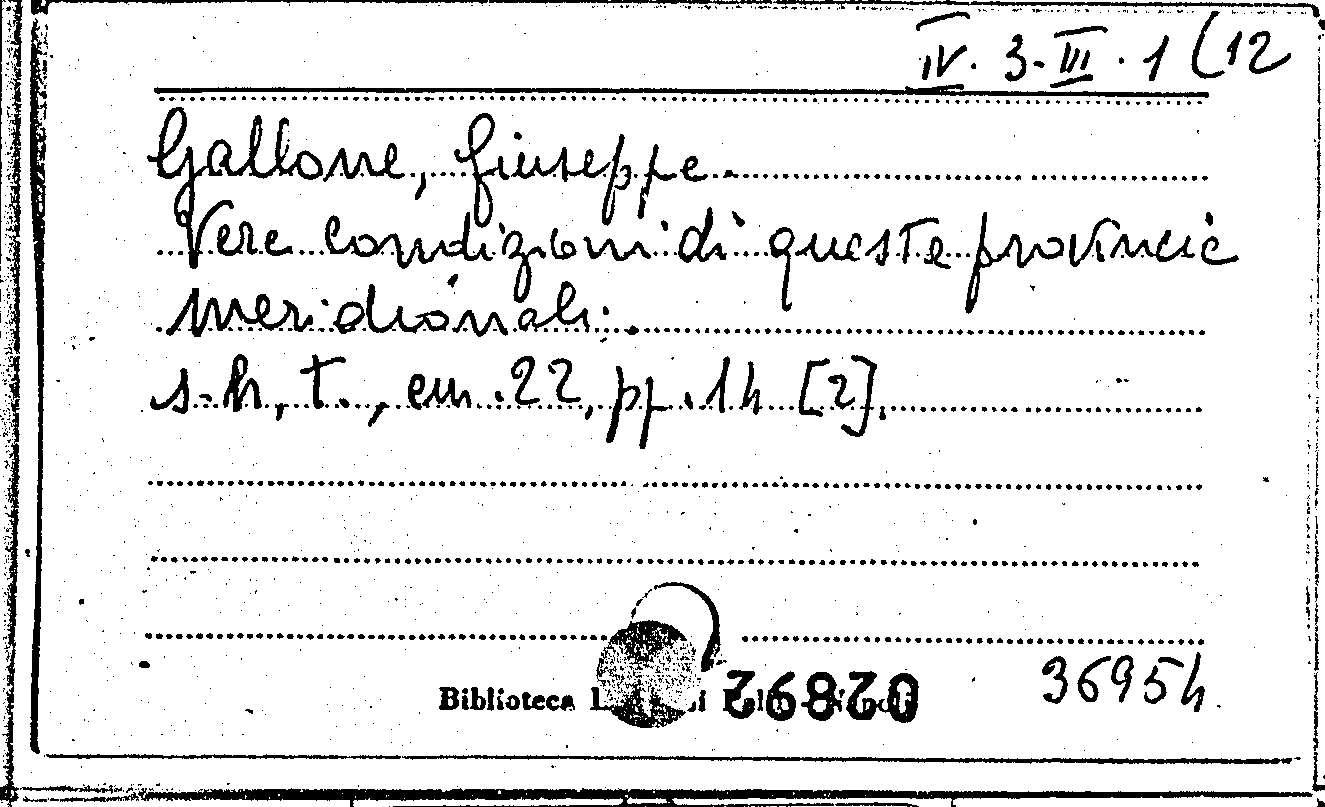 IV. 3. III. 1 (12
Gallone, Giuseppe.
Vere condizioni di queste provincie
meridionali.
s.n.t., cm. 22, pp. 14 [2].
Biblioteca
36954